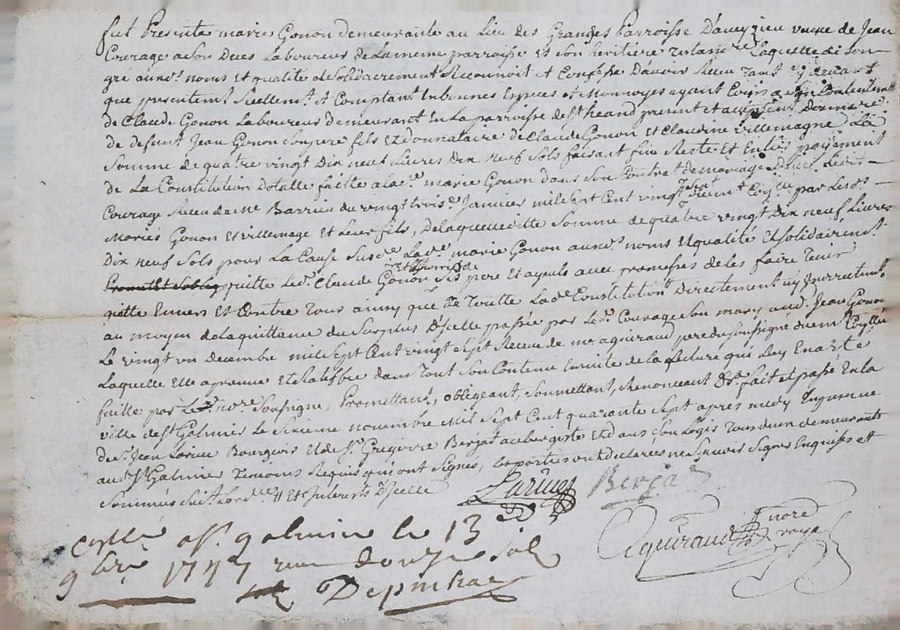 fut presente marie Gonon demeurante au Lieu des Granges Parroisse D'aveyzieu veuve de Jean
Courage a Son Deces Laboureur de La meme parroisse et Son heritiere Laquelle de Son
gre aux.d noms et qualité et Solidairement Reconnoit et Confesse D'avoir Receu
que presentemt Reellemt et Comptant En bonnes Especes et Monnoyes ayant Cours a Son Contentemt
de Claude Gonon Laboureur demeurant En La parroisse de St heand present et acceptant
de deffunt Jean Gonon Son pere fils et donnataire de Claude Gonon et Claudine Villemagne La
Somme de quatre vingt Dix neuf Livres Dix neuf Sols faisant fin Reste et Entier payement
de La Constitution Dotalle faitte a La de marie Gonon dans Son Contrat de mariage Avec Ledit
Courage Receu de me Barrier du vingt trois.e Janvier mil Sept Cent vingt par Les d.
Mariés Gonon et villemage et Leur fils, De Laquelle ditte Somme de quatre vingt Dix neuf Livres
Dix neuf Sols pour La Cause Susd.e La de marie Gonon aux d noms et qualité et Solidairemt
quitte Le d. Claude Gonon Ses pere et ayeuls avec promesse de Les faire Tenir
quitte Envers et Contre Tous ainsy que de Toutte La de Constitution Directement ny Indirectemt
au moyen de La quittance du Surplus D'Icelle passée par Le d. Courage Son mary aud. Jean Gonon
Le vingt un Decembre mil Sept Cent vingt Sept Receue de me aguiraud pere du Soussigné
Laquelle Elle aprouve et Ratiffie dans Tout Son Contenu Ensuite de La Lecture qui Luy En a Eté
faitte par Le nore Soussigné, Promettant, obligeant, Soumettant, Renonceant &a fait et passé En La
ville de St Galmier Le Sixieme novembre Mil Sept Cent quarante Sept apres midy En presence
de Sr Jean Larue Bourgeois Et de Sr Gregoire Berjat aubergiste et dans Son Logis Tous deux demeurants
aud. St Galmier Temoins Requis qui ont Signés, Les parties ont Declarés ne Scavoir Signer Enquises et
Sommés Suit. Lord.ce et Interests D'Icelle
Larue Berjat
Aguiraud nore Royal
Coyllé a St galmier le 13
9bre 1747 reçu douze sols
Depinhac